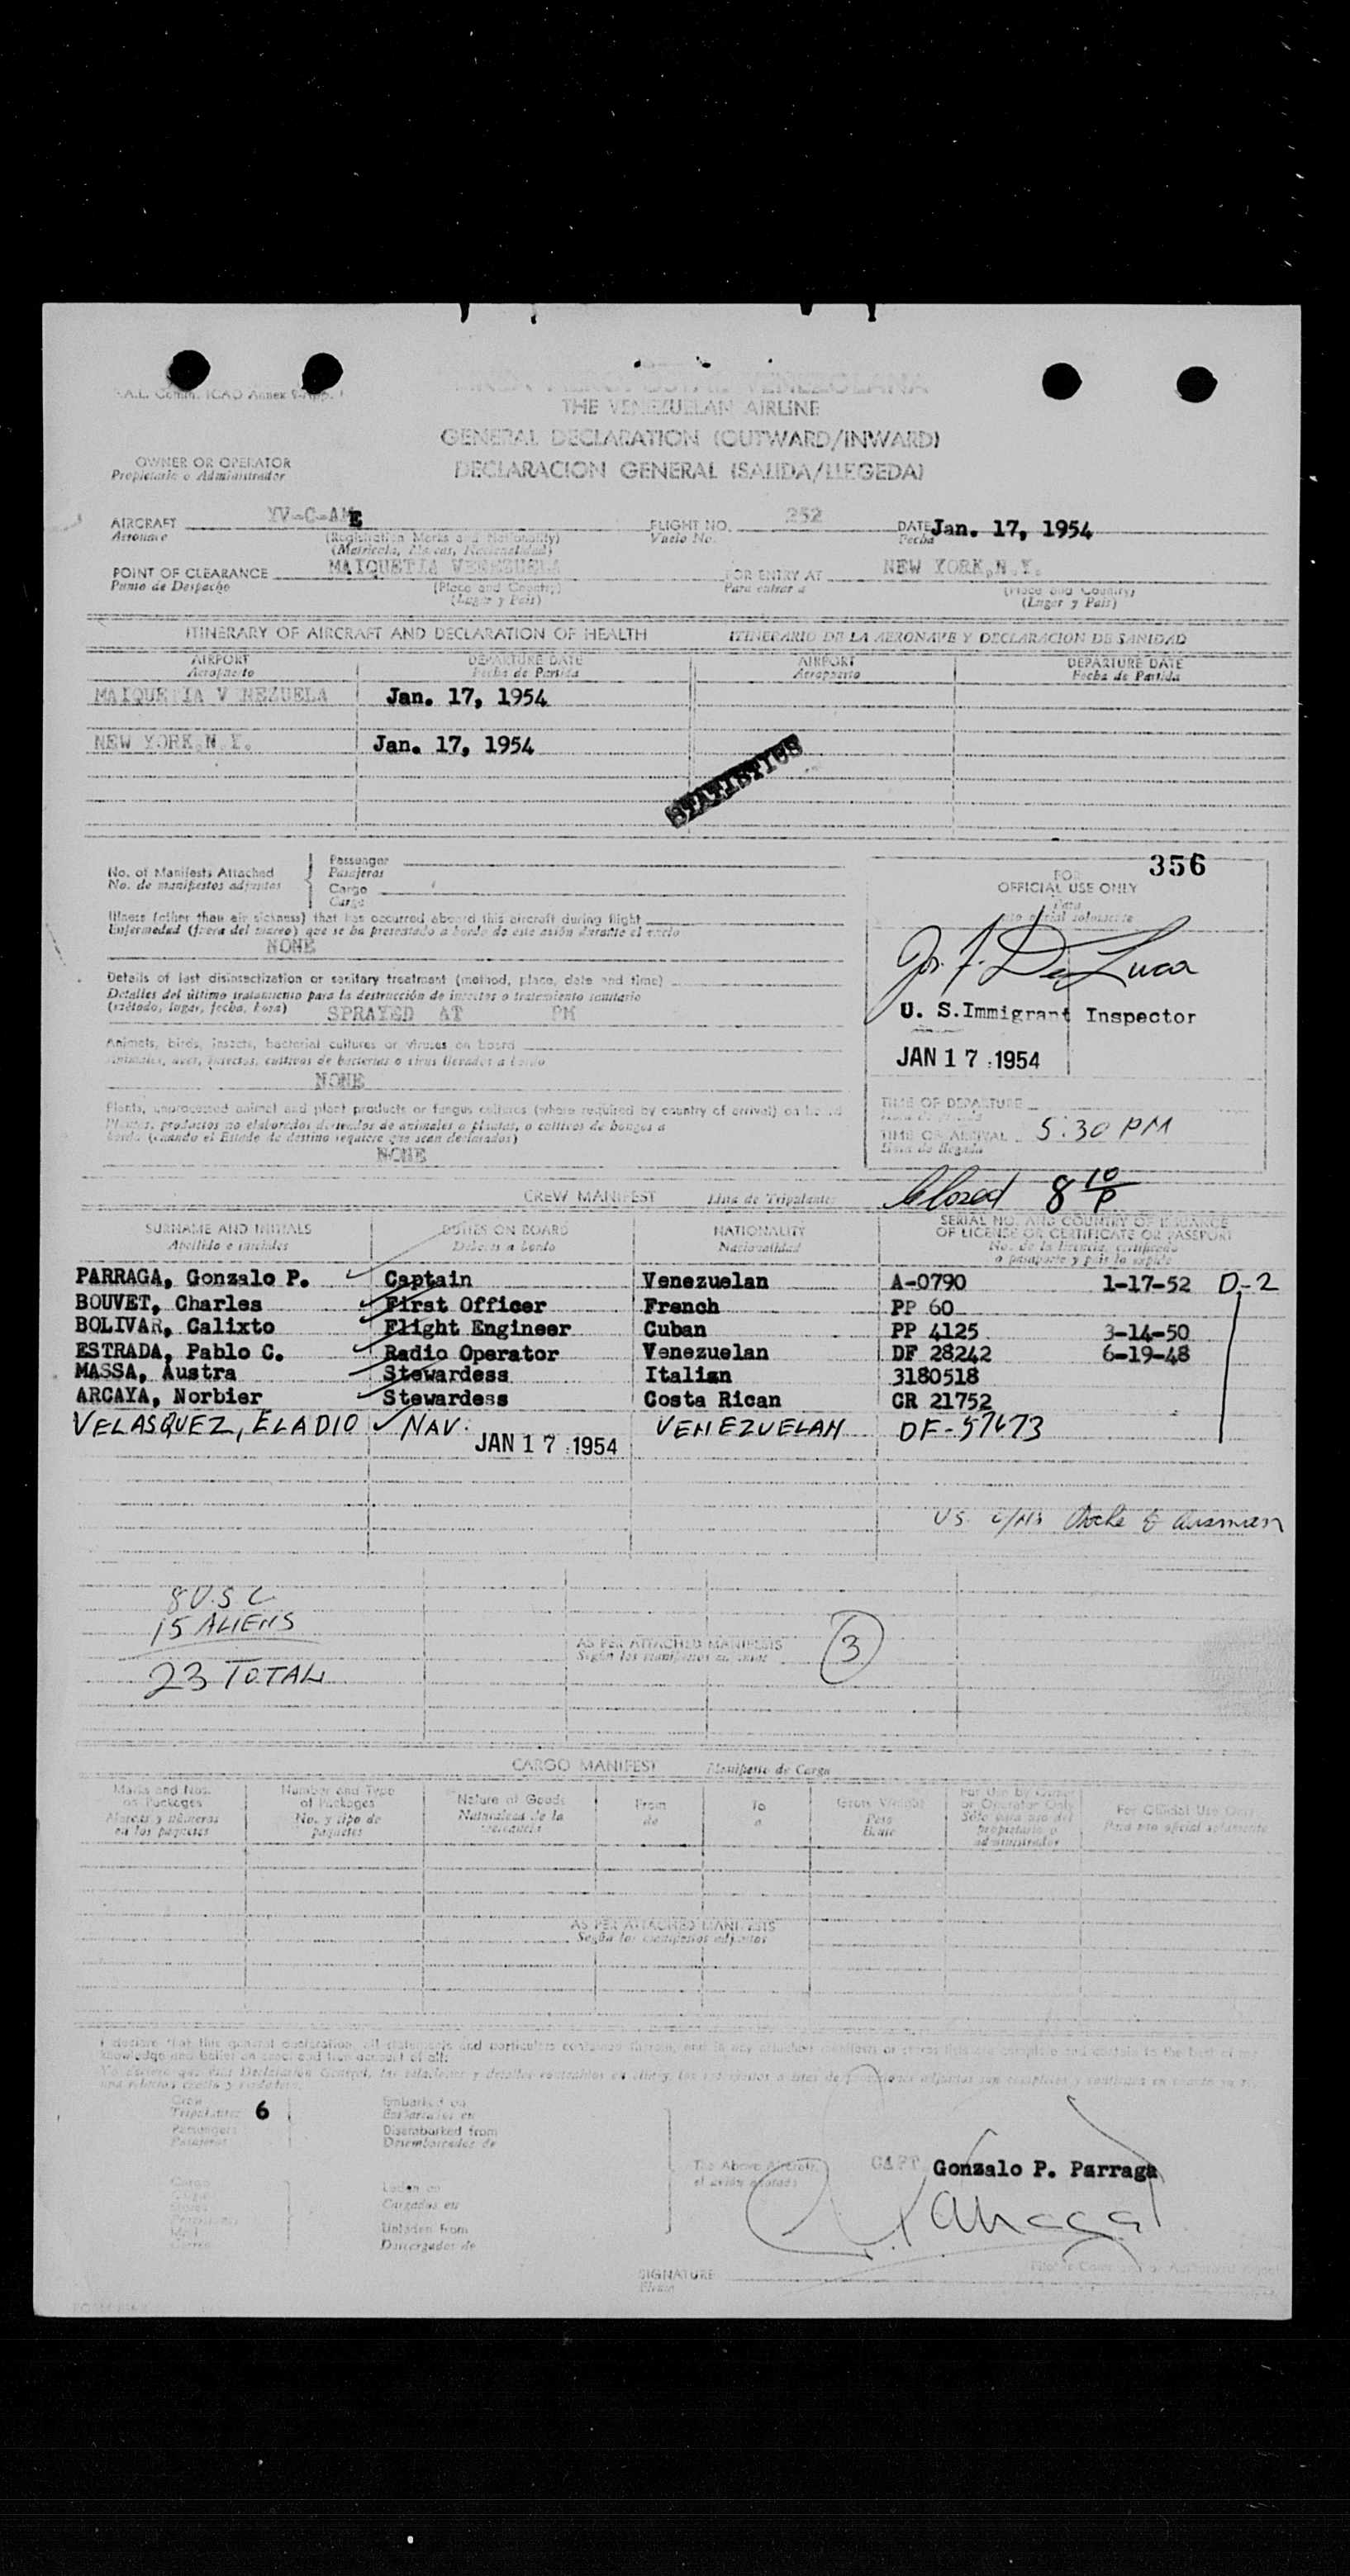 THE VENEZUELAN AIRLINE
GENERAL DECLARATION (OUTWARD/INWARD)
DECLARACION GENERAL (SALIDA/LLEGEDA)
OWNER OR OPERATOR
Propietario o Administrador
AIRCRAFT YV-C-AME FLIGHT NO. 252 DATE Jan. 17, 1954
Aeronave (Registration Marks and Nationality) Vuelo No. Fecha
POINT OF CLEARANCE MAIQUETIA VENEZUELA FOR ENTRY AT NEW YORK, N.Y.
Punto de Despacho (Place and Country) Para entrar a (Place and Country)
(Lugar y Pais) (Lugar y Pais)
ITINERARY OF AIRCRAFT AND DECLARATION OF HEALTH ITINERARIO DE LA AERONAVE Y DECLARACION DE SANIDAD
AIRPORT DEPARTURE DATE AIRPORT DEPARTURE DATE
Aeropuerto Fecha de Partida Aeropuerto Fecha de Partida
MAIQUETIA V NEZUELA Jan. 17, 1954
NEW YORK, N.Y. Jan. 17, 1954
STATISTICS
356
No. of Manifests Attached Passenger
No. de manifiestos adjuntos Pasajeros
Cargo
Carga
FOR
OFFICIAL USE ONLY
Para
Illness (other than air sickness) that has occurred aboard this aircraft during flight
Enfermedad (fuera del mareo) que se ha presentado a bordo de este avión durante el vuelo
NONE
Jos. F. De Luca
U. S. Immigrant Inspector
JAN 17 1954
Details of last disinsectization or sanitary treatment (method, place, date and time)
Detalles del último tratamiento para la destrucción de insectos o tratamiento sanitario
(método, lugar, fecha, hora) SPRAYED AT PM
Animals, birds, insects, bacterial cultures or viruses on board
Animales, aves, insectos, cultivos de bacterias o virus llevados a bordo
NONE
Plants, unprocessed animal and plant products or fungus cultures (where required by country of arrival) on board
Plantas, productos no elaborados derivados de animales o plantas, o cultivos de hongos a
bordo (cuando el Estado de destino requiere que sean declarados)
NONE
TIME OF DEPARTURE
TIME OF ARRIVAL 5:30 PM
Hora de llegada
Closed 8 10/P
CREW MANIFEST Lista de Tripulantes
SURNAME AND INITIALS DUTIES ON BOARD NATIONALITY SERIAL NO. AND COUNTRY OF ISSUANCE
Apellido e iniciales Deberes a bordo Nacionalidad OF LICENSE OR CERTIFICATE OR PASSPORT
No. de la licencia, certificado
o pasaporte y pais lo expide
PARRAGA, Gonzalo P. Captain Venezuelan A-0790 1-17-52 D-2
BOUVET, Charles First Officer French PP 60
BOLIVAR, Calixto Flight Engineer Cuban PP 4125 3-14-50
ESTRADA, Pablo C. Radio Operator Venezuelan DF 28242 6-19-48
MASSA, Austra Stewardess Italian 3180518
ARCAYA, Norbier Stewardess Costa Rican CR 21752
VELASQUEZ, ELADIO NAV. VENEZUELAN DF-57673
JAN 17 1954
8 U.S C
15 ALIENS
23 TOTAL
AS PER ATTACHED MANIFESTS 3
CARGO MANIFEST Manifiesto de Carga
Marks and Nos. Number and Type Nature of Goods From To Gross Weight For Use by Owner For Official Use Only
on Packages of Packages Naturaleza de la de a Peso or Operator Only Para uso oficial solamente
Marcas y números No. y tipo de Bruto Sólo para uso del
en los paquetes paquetes propietario o
administrador
AS PER ATTACHED MANIFESTS
Según los manifiestos adjuntos
Crew 6 Embarked on
Tripulantes Embarcados en
Passengers Disembarked from
Pasajeros Desembarcados de
The Above Aircraft
CAPT. Gonzalo P. Parraga
Cargo Laden on
Cargados en
Unladen from
Descargados de
SIGNATURE